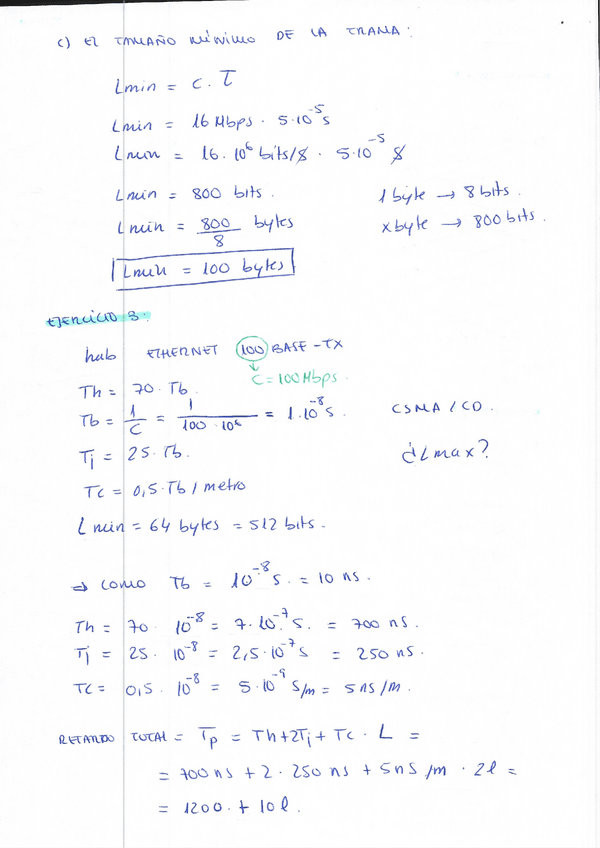 c) EL TAMAÑO MÍNIMO DE LA TRAMA:
Lmin = C · τ
Lmin = 16 Mbps · 5·10⁻⁵ s
Lmin = 16·10⁶ bits/s · 5·10⁻⁵ s
Lmin = 800 bits. 1 byte → 8 bits.
Lmin = 800/8 bytes x byte → 800 bits.
Lmin = 100 bytes
EJERCICIO 3.
hub ETHERNET 100 BASE-TX
C = 100 Mbps.
Th = 70 · Tb.
Tb = 1/C = 1/(100·10⁶) = 1·10⁻⁸ s. CSMA/CD.
Tj = 25·Tb. ¿Lmax?
Tc = 0,5·Tb/metro
Lmin = 64 bytes = 512 bits.
⇒ COMO Tb = 10⁻⁸ s. = 10 ns.
Th = 70 · 10⁻⁸ = 7·10⁻⁷ s. = 700 ns.
Tj = 25 · 10⁻⁸ = 2,5·10⁻⁷ s = 250 ns.
Tc = 0,5 · 10⁻⁸ = 5·10⁻⁹ s/m = 5 ns/m.
RETARDO TOTAL = Tp = Th + 2Tj + Tc · L =
= 700 ns + 2 · 250 ns + 5 ns/m · 2l =
= 1200 + 10l.